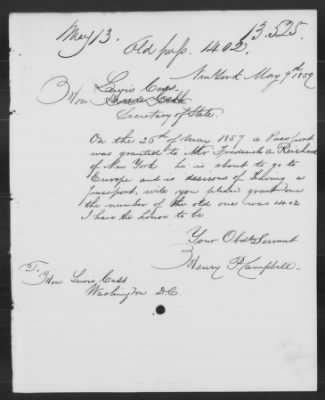 May 13.
13.525.
Old passp. 1402.
New York May 9th 1859
Hon Lewis Cass
Secretary of State.
On the 26th of May 1857 a Passport
was granted to Mr Frederick A. Reichard
of New York he is about to go to
Europe and is desirous of having a
passport, will you please grant one
the number of the old one was 1402
I have the honor to be
Your Obdt Servant
Henry P. Campbell.
To
Hon Lewis Cass
Washington D.C.